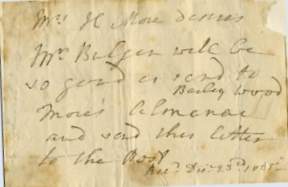 Mrs H More desires
Mr. Bulgin will be
so good as send to
Barley Wood
More's Almanac
and send this letter
to the Post
Decr 23d